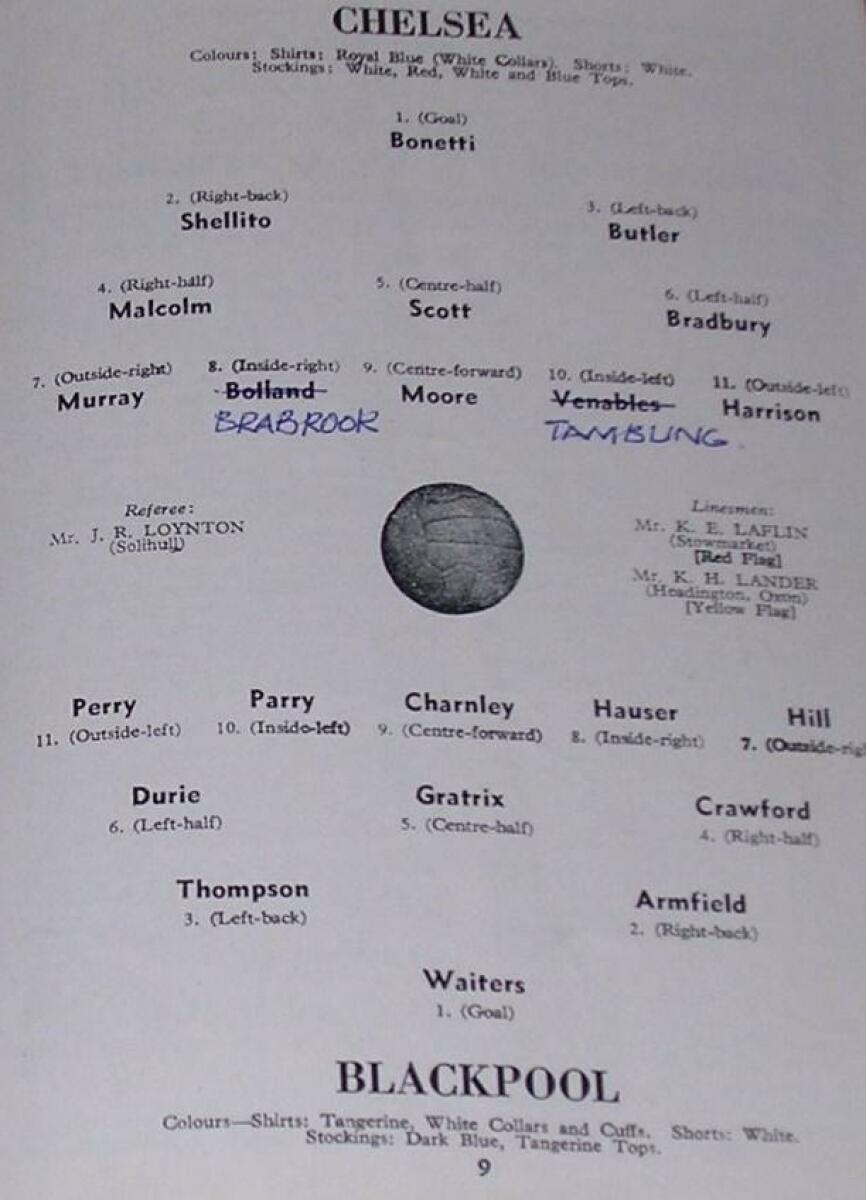 CHELSEA
Colours: Shirts: Royal Blue (White Collars). Shorts: White.
Stockings: White, Red, White and Blue Tops.
1. (Goal)
Bonetti
2. (Right-back) 3. (Left-back)
Shellito Butler
4. (Right-half) 5. (Centre-half) 6. (Left-half)
Malcolm Scott Bradbury
7. (Outside-right) 8. (Inside-right) 9. (Centre-forward) 10. (Inside-left) 11. (Outside-left)
Murray Bolland Moore Venables Harrison
BRABROOK TAMBLING
Referee:
Mr. J. R. LOYNTON
(Solihull)
Linesmen:
Mr. K. E. LAFLIN
(Stowmarket)
[Red Flag]
Mr. K. H. LANDER
(Headington, Oxon)
[Yellow Flag]
Perry Parry Charnley Hauser Hill
11. (Outside-left) 10. (Inside-left) 9. (Centre-forward) 8. (Inside-right) 7. (Outside-rig
Durie Gratrix Crawford
6. (Left-half) 5. (Centre-half) 4. (Right-half)
Thompson Armfield
3. (Left-back) 2. (Right-back)
Waiters
1. (Goal)
BLACKPOOL
Colours—Shirts: Tangerine, White Collars and Cuffs. Shorts: White.
Stockings: Dark Blue, Tangerine Tops.
9